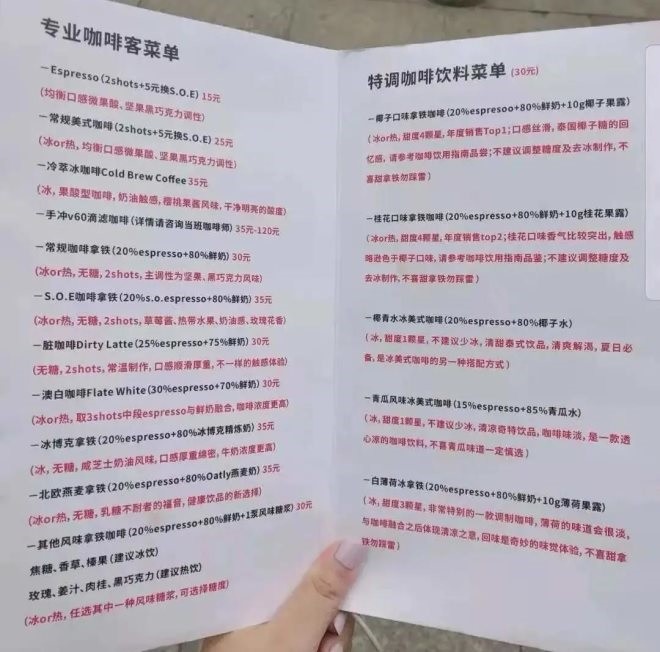 专业咖啡客菜单
－Espresso(2shots+5元换S.O.E) 15元
(均衡口感微果酸、坚果黑巧克力调性)
－常规美式咖啡(2shots+5元换S.O.E) 25元
(冰or热, 均衡口感微果酸、坚果黑巧克力调性)
－冷萃冰咖啡Cold Brew Coffee 35元
(冰, 果酸型咖啡, 奶油触感, 樱桃果酱风味, 干净明亮的酸度)
－手冲v60滴滤咖啡(详情请咨询当班咖啡师) 35元-120元
－常规咖啡拿铁(20%espresso+80%鲜奶) 30元
(冰or热, 无糖, 2shots, 主调性为坚果、黑巧克力风味)
－S.O.E咖啡拿铁(20%s.o.espresso+80%鲜奶) 35元
(冰or热, 无糖, 2shots, 草莓酱、热带水果、奶油感、玫瑰花香)
－脏咖啡Dirty Latte(25%espresso+75%鲜奶) 30元
(无糖, 2shots, 常温制作, 口感顺滑厚重, 不一样的触感体验)
－澳白咖啡Flate White(30%espresso+70%鲜奶) 30元
(冰or热, 取3shots中段espresso与鲜奶融合, 咖啡浓度更高)
－冰博克拿铁(20%espresso+80%冰博克精炼奶) 35元
(冰, 无糖, 咸芝士奶油风味, 口感厚重绵密, 牛奶浓度更高)
－北欧燕麦拿铁(20%espresso+80%Oatly燕麦奶) 35元
(冰or热, 无糖, 乳糖不耐者的福音, 健康饮品的新选择)
－其他风味拿铁咖啡(20%espresso+80%鲜奶+1泵风味糖浆) 30元
焦糖、香草、榛果(建议冰饮)
玫瑰、姜汁、肉桂、黑巧克力(建议热饮)
(冰or热, 任选其中一种风味糖浆, 可选择糖度)
特调咖啡饮料菜单 (30元)
－椰子口味拿铁咖啡(20%espresoo+80%鲜奶+10g椰子果露)
(冰or热, 甜度4颗星, 年度销售Top1; 口感丝滑, 泰国椰子糖的回
忆感, 请参考咖啡饮用指南品尝; 不建议调整糖度及去冰制作, 不
喜甜拿铁勿踩雷)
－桂花口味拿铁咖啡(20%espresso+80%鲜奶+10g桂花果露)
(冰or热, 甜度4颗星, 年度销售top2; 桂花口味香气比较突出, 触感
略逊色于椰子口味, 请参考咖啡饮用指南品鉴; 不建议调整糖度及
去冰制作, 不喜甜拿铁勿踩雷)
－椰青水冰美式咖啡(20%espresso+80%椰子水)
(冰, 甜度1颗星, 不建议少冰, 清甜泰式饮品, 清爽解渴, 夏日必
备, 是冰美式咖啡的另一种搭配方式)
－青瓜风味冰美式咖啡(15%espresso+85%青瓜水)
(冰, 甜度1颗星, 不建议少冰, 清凉奇特饮品, 咖啡味淡, 是一款透
心凉的咖啡饮料, 不喜青瓜味道一定慎选)
－白薄荷冰拿铁(20%espresso+80%鲜奶+10g薄荷果露)
(冰, 甜度3颗星, 非常特别的一款调制咖啡, 薄荷的味道会很淡,
与咖啡融合之后体现清凉之意, 回味是奇妙的味觉体验, 不喜甜拿
铁勿踩雷)